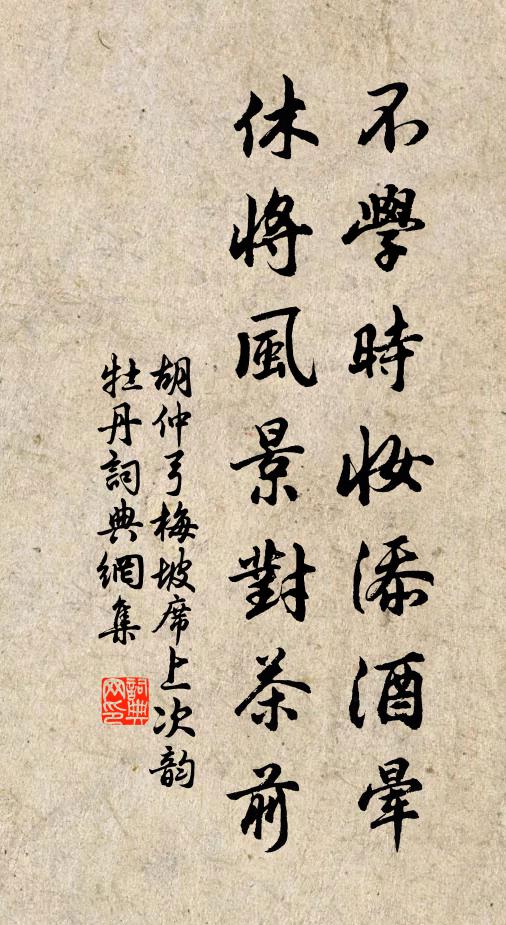 不學時妝添酒暈
休將風景對茶前
胡仲弓梅坡席上次韵
牡丹詞典網集
詞典
网印